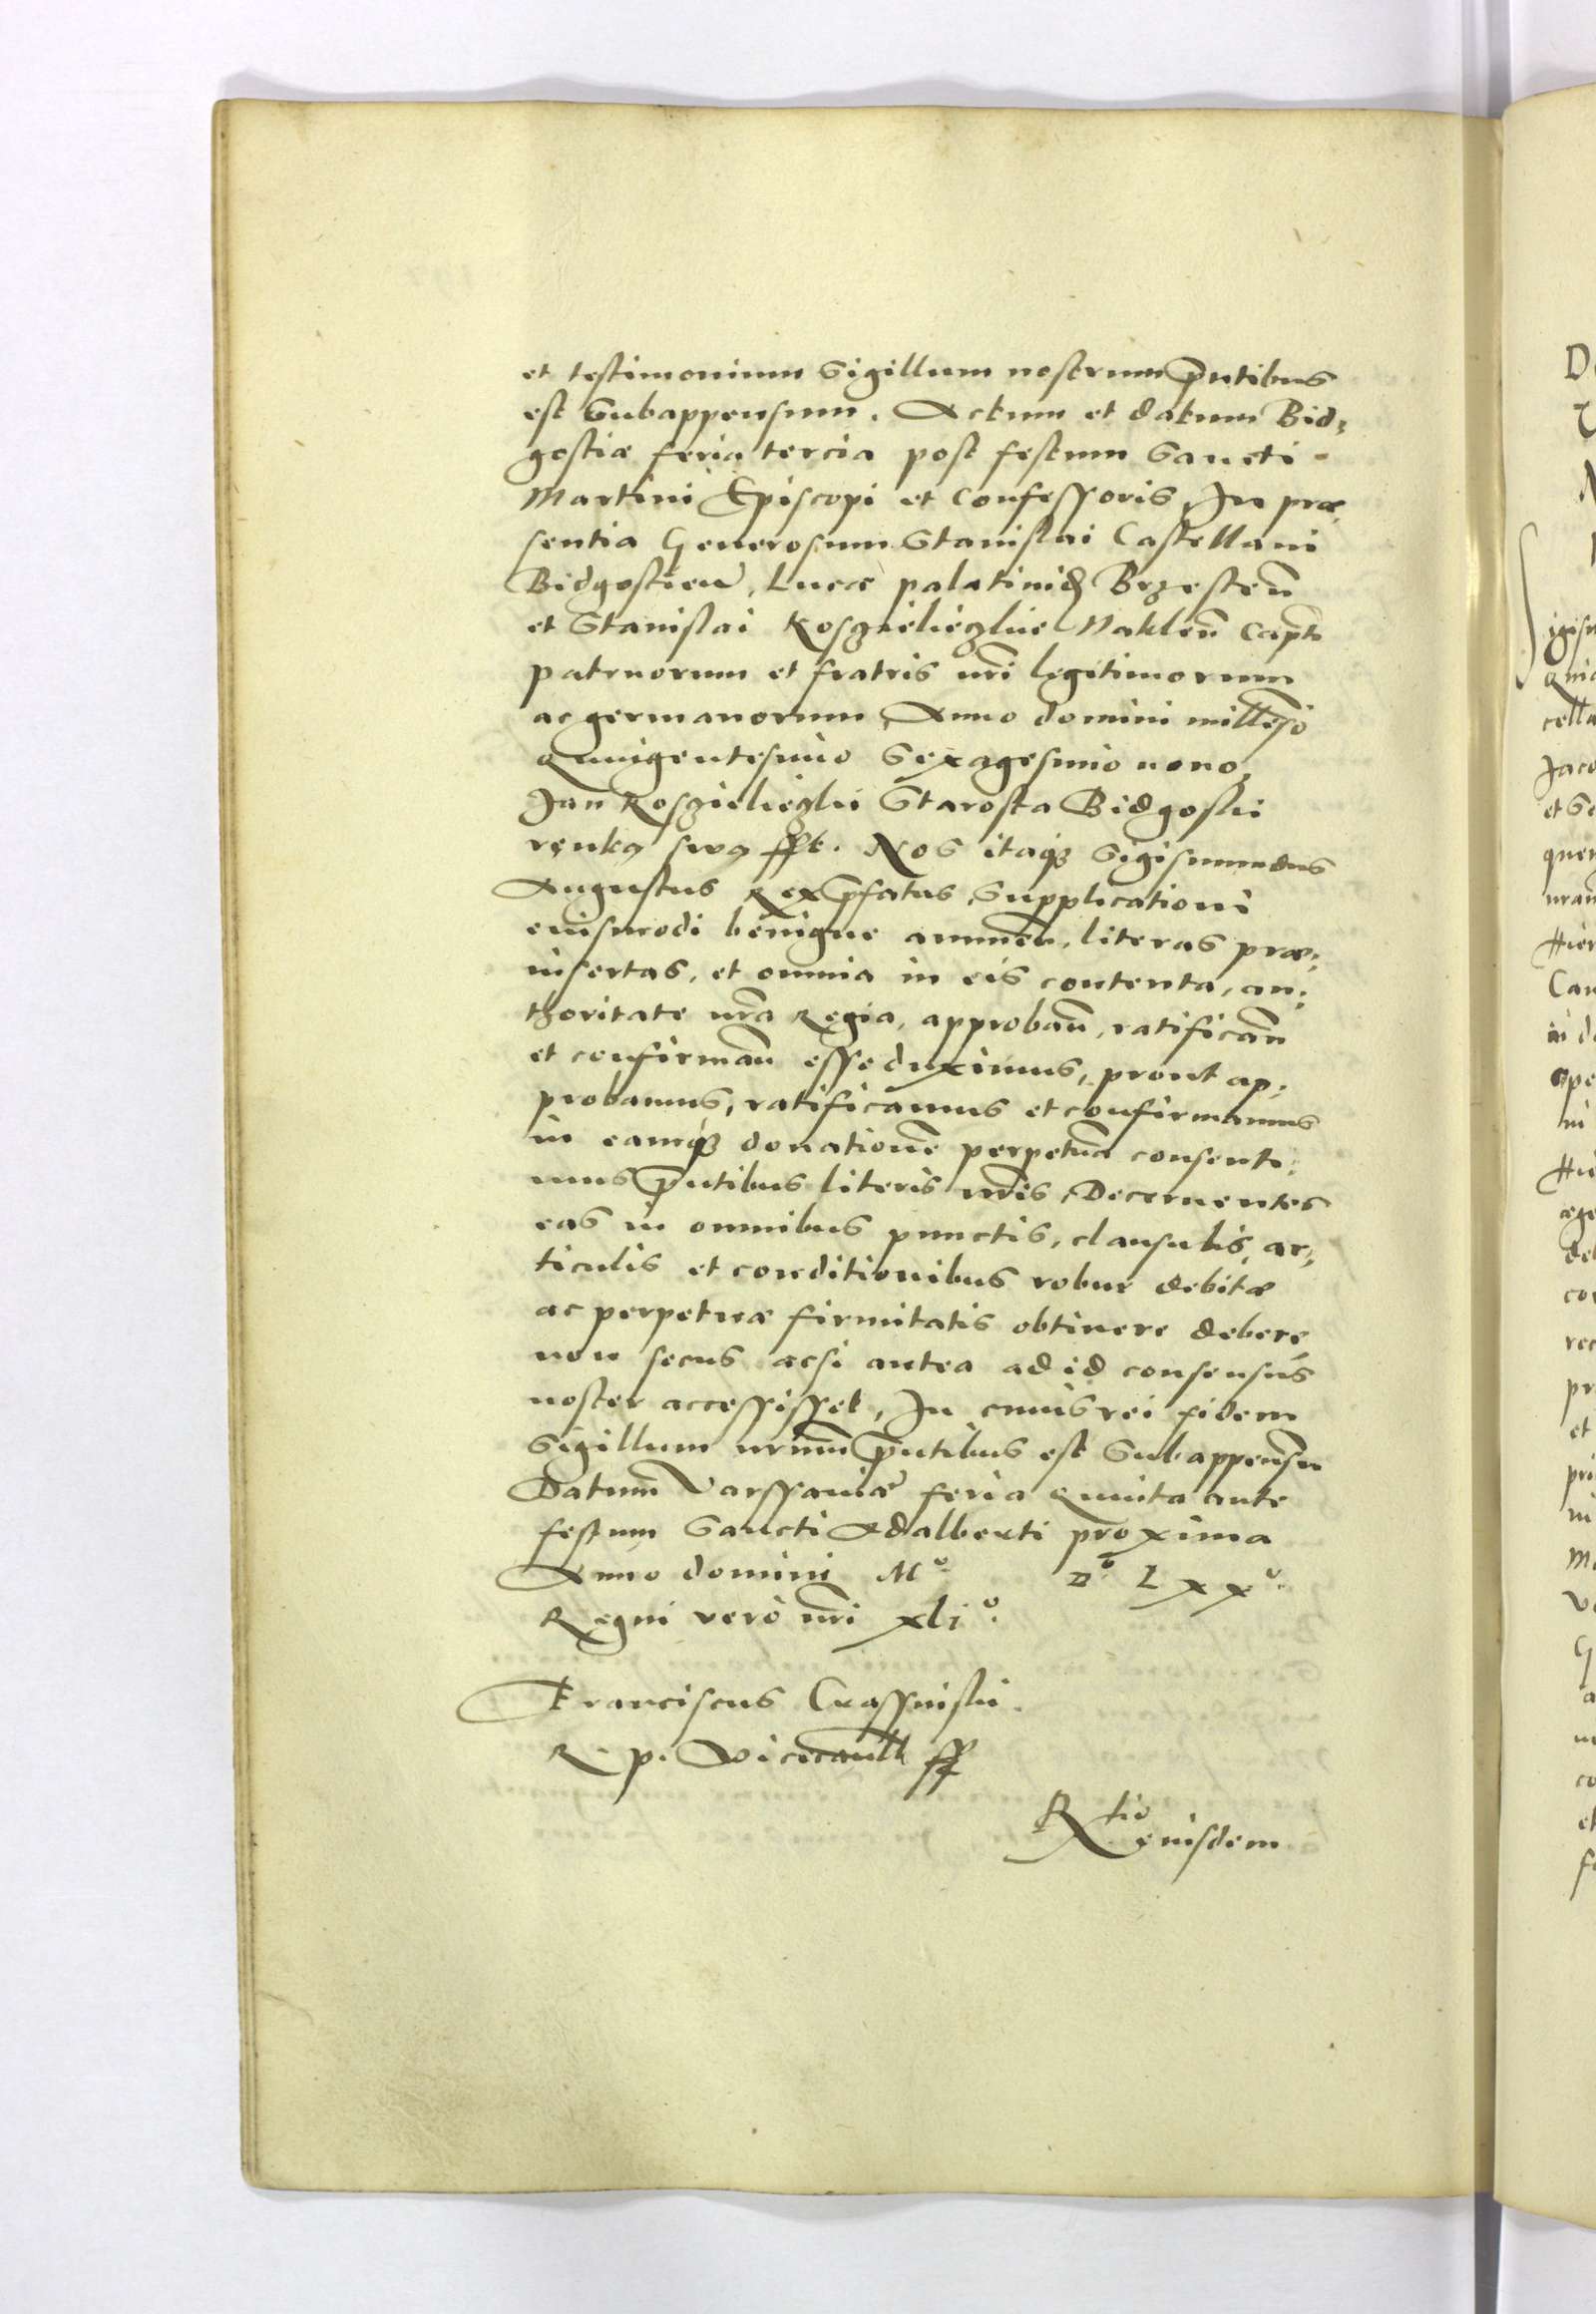 et testimonium Sigillum nostrum pñtibus
est Subappensum. Actum et datum Bid,
gostiæ feria tercia post festum Sancti
Martini Episcopi et Confessoris, In præ,
sentia Generosum Stanislai Castellani
Bidgostien, Lucæ palatinid Brzesteñ
et Stanislai Kosczielieczkie Nakleñ Capt
patruorum et fratris nri legitimorum
ac germanorum, Anno domini millesio
Quingentesimo Sexagesimo nono,
Jan Kosczieliezki Starosta Bidgoski
ręnką swą sst. Nos itaq Sigismundus
Augustus Rex pfatus, Supplicationi
euismodi benigne annuen. literas præ,
insertas, et omnia in eis contenta, au,
thoritate nra Regia, approbañ, ratificañ
et confirmañ esse duximus, prout ap,
probamus, ratificamus et confirmamus
in eamq donatione perpetua consenti,
mus pñtibus literis nris, Decernentes
eas in omnibus punctis, clausulis, ar,
ticulis et conditionibus robur debitæ
ac perpetuæ firmitatis obtinere debere
non secus acsi antea ad id consensus
noster accessisset, In cuius rei fidem
Sigillum nrum pñtibus est Subappensu
Datum Varssauiæ feria Quinta ante
festum Sancti Adalberti proxima
Anno domini Mº Dº Lxxº
Regni vero nri xljº.
Franciscus Crassinski.
R. p. Vicecancell sst
Rtio eiusdem